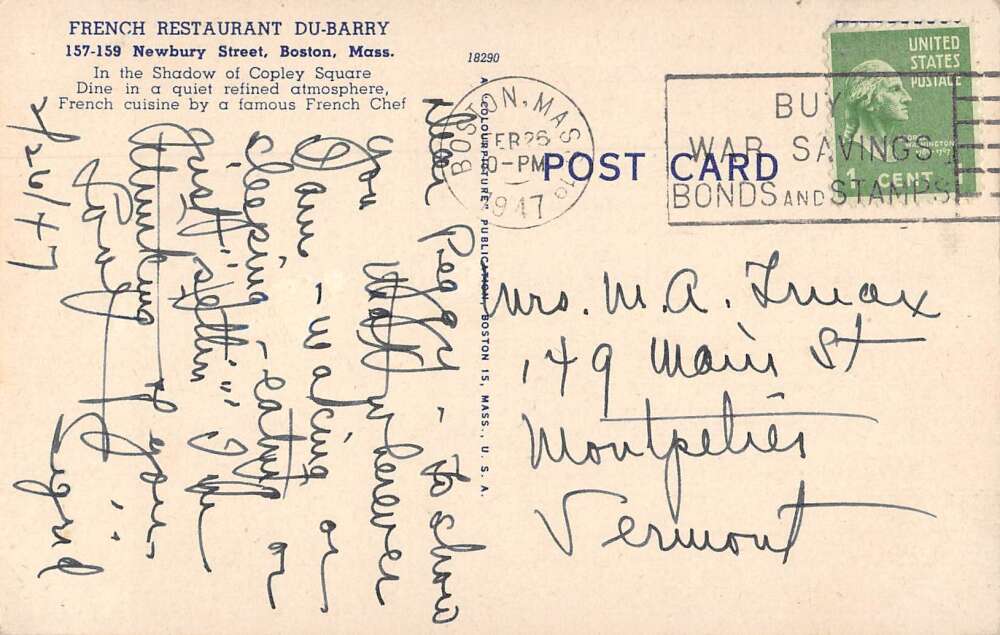 FRENCH RESTAURANT DU-BARRY
157-159 Newbury Street, Boston, Mass.
In the Shadow of Copley Square
Dine in a quiet refined atmosphere,
French cuisine by a famous French Chef
18290
A "COLOURPICTURE" PUBLICATION, BOSTON 15, MASS., U. S. A.
POST CARD
BOSTON, MASS
FEB 26
0-PM
1947
BUY
WAR SAVINGS
BONDS AND STAMPS
UNITED
STATES
POSTAGE
WASHINGTON
1 CENT
2/26/47
Dear Peggy - to show
you that wherever
I am - waking or
sleeping - eating or
just "settin" I'm
thinking of you -
Mrs. M. A.
149 Main St
Montpelier
Vermont